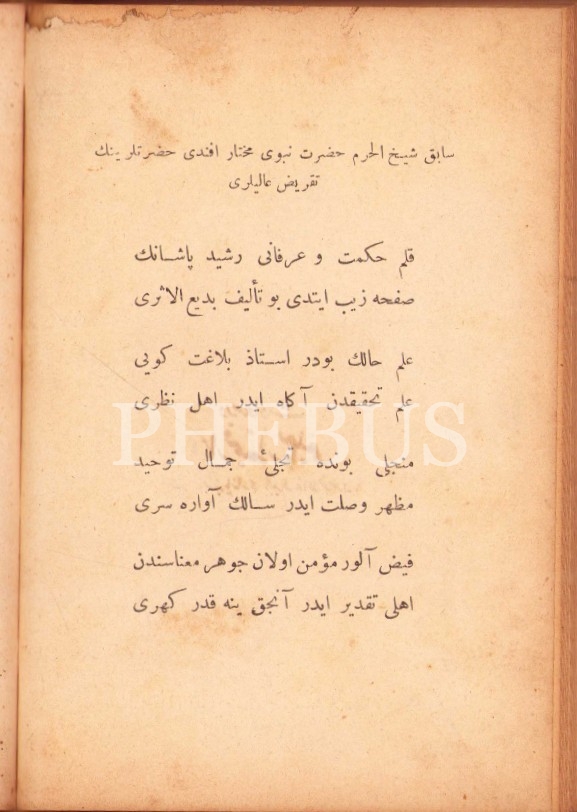 سابق شیخ الحرم حضرت نبوی مختار افندی حضرتلرینك
تقریض عالیلری
قلم حكمت و عرفانی رشید پاشانك
صفحه زیب ایتدی بو تألیف بدیع الاثری
علم حالك بودر استاذ بلاغت كویی
علم تحقیقدن آكاه ایدر اهل نظری
منجلی بونده تجلئ جمال توحید
مظهر وصلت ایدر سالك آواره سری
فیض آلور مؤمن اولان جوهر معناسندن
اهلی تقدیر ایدر آنجق ینه قدر كهری
PHEBUS